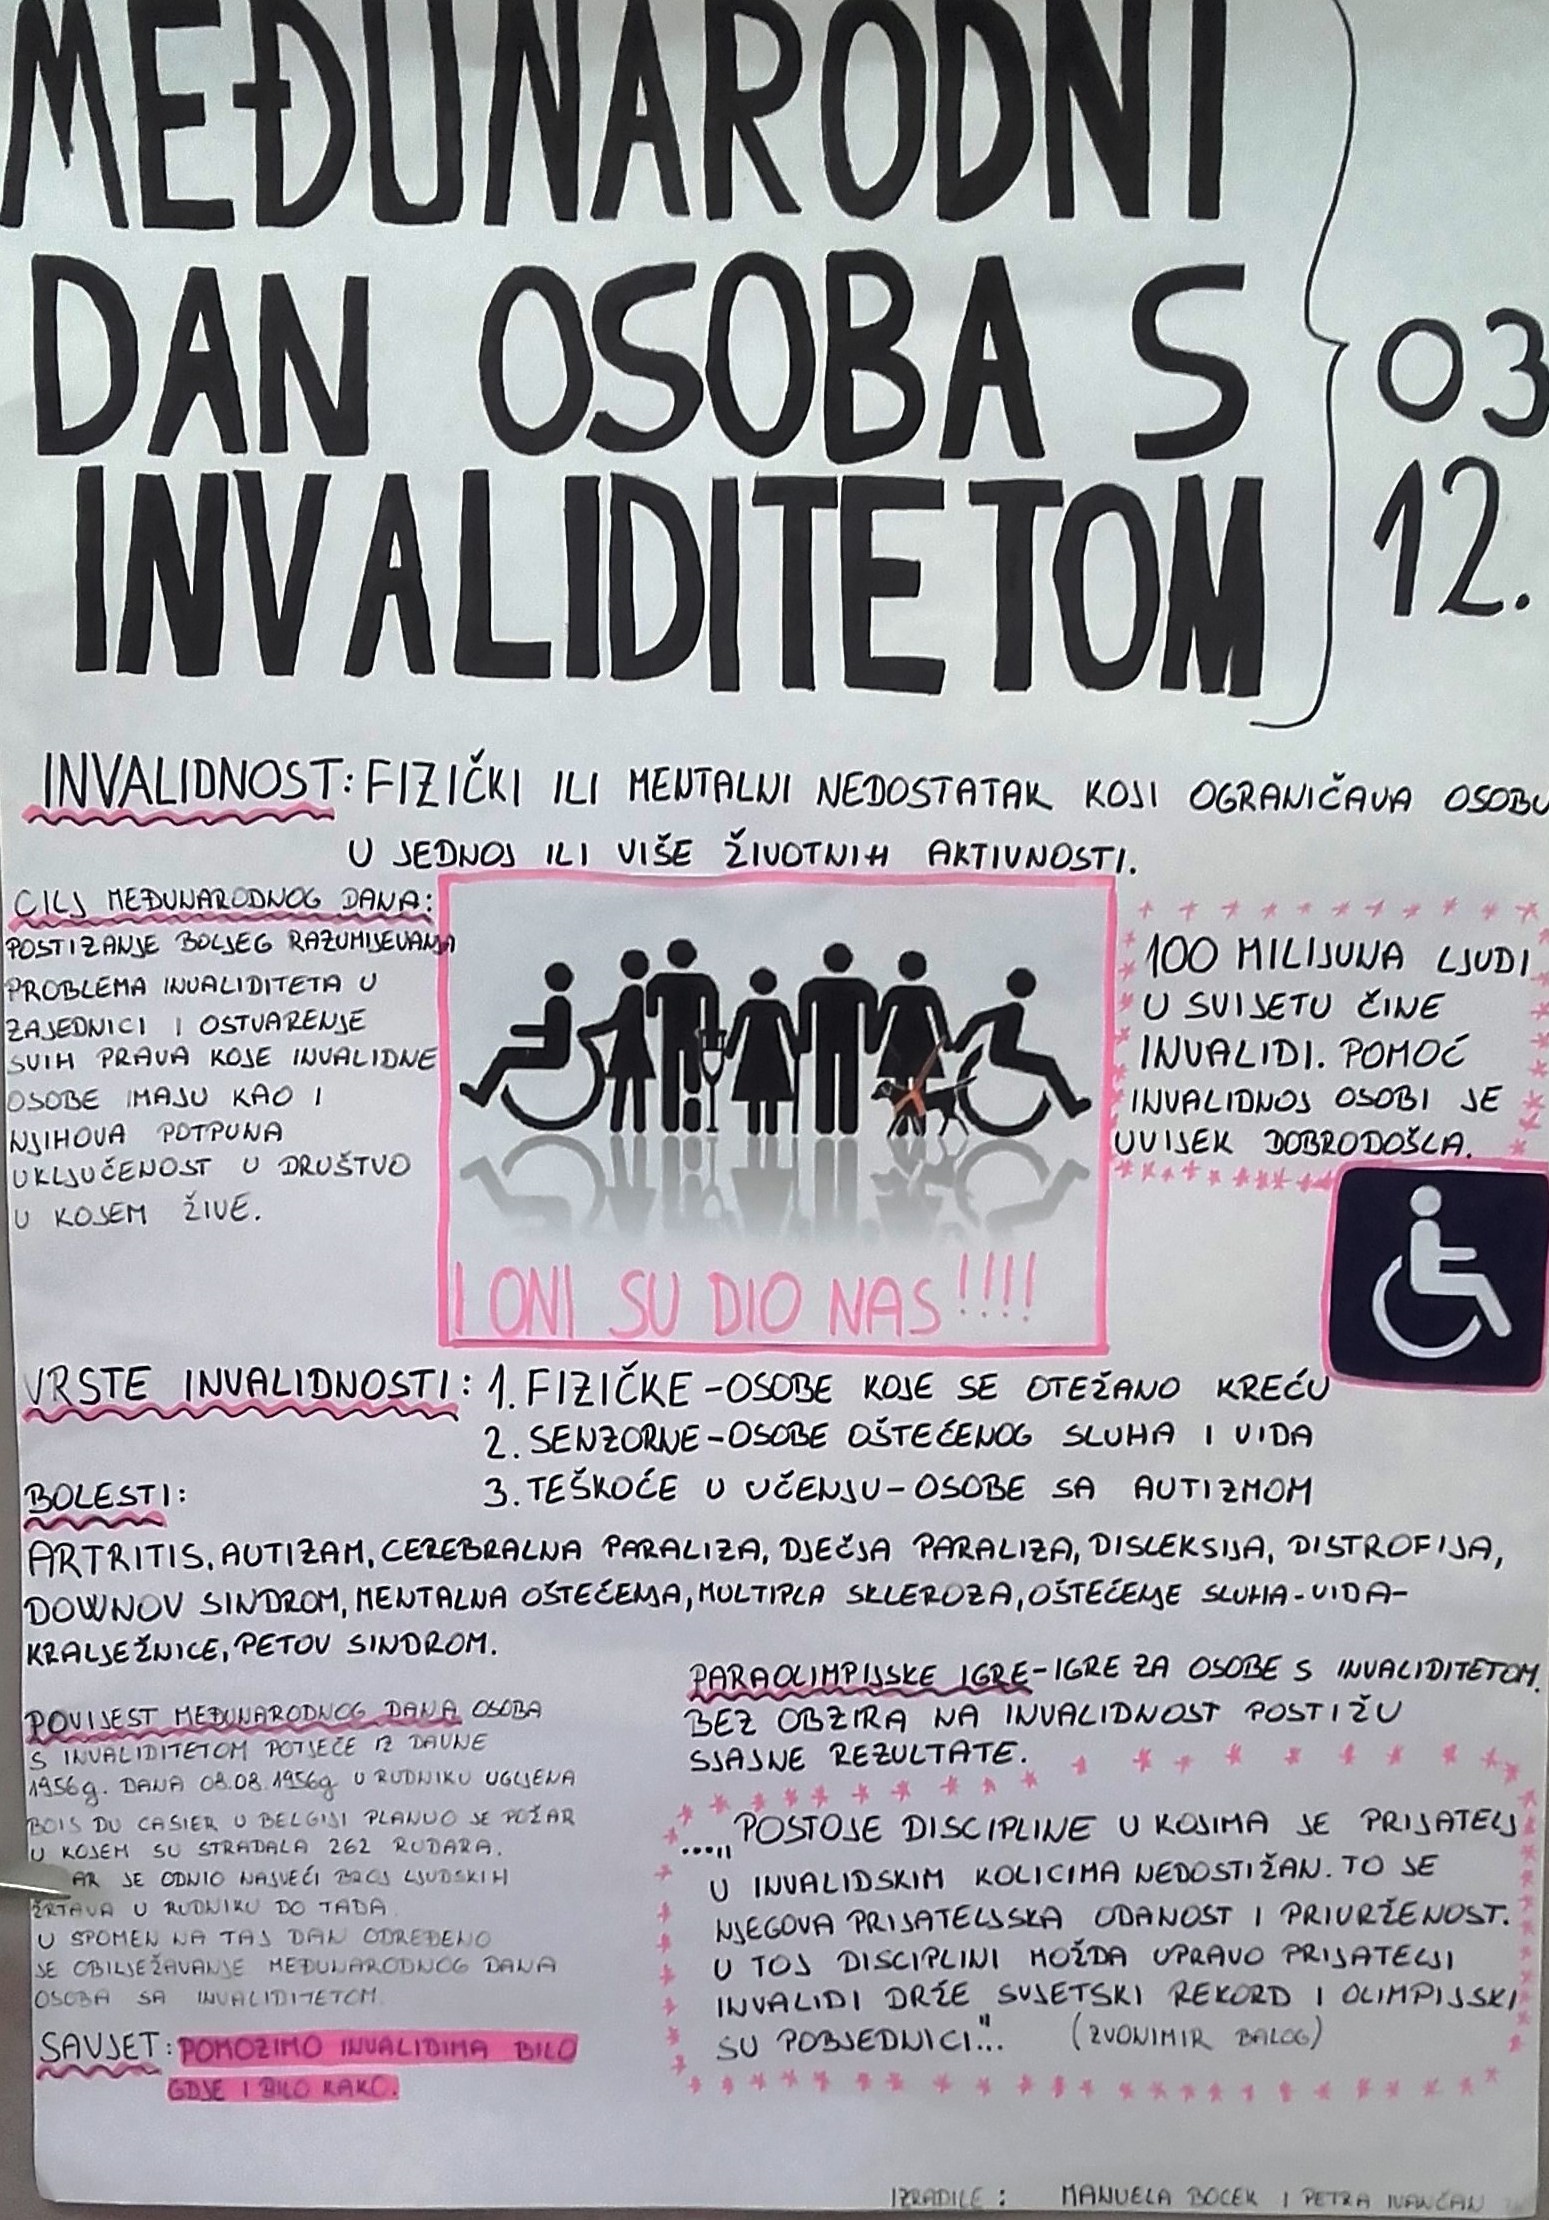 MEĐUNARODNI
DAN OSOBA S
INVALIDITETOM
03
12.
INVALIDNOST: FIZIČKI ILI MENTALNI NEDOSTATAK KOJI OGRANIČAVA OSOBU
U JEDNOJ ILI VIŠE ŽIVOTNIH AKTIVNOSTI.
CILJ MEĐUNARODNOG DANA:
POSTIZANJE BOLJEG RAZUMIJEVANJA
PROBLEMA INVALIDITETA U
ZAJEDNICI I OSTVARENJE
SVIH PRAVA KOJE INVALIDNE
OSOBE IMAJU KAO I
NJIHOVA POTPUNA
UKLJUČENOST U DRUŠTVO
U KOJEM ŽIVE.
I ONI SU DIO NAS!!!!
100 MILIJUNA LJUDI
U SVIJETU ČINE
INVALIDI. POMOĆ
INVALIDNOJ OSOBI JE
UVIJEK DOBRODOŠLA.
VRSTE INVALIDNOSTI: 1. FIZIČKE-OSOBE KOJE SE OTEŽANO KREĆU
2. SENZORNE-OSOBE OŠTEĆENOG SLUHA I VIDA
3. TEŠKOĆE U UČENJU-OSOBE SA AUTIZMOM
BOLESTI:
ARTRITIS, AUTIZAM, CEREBRALNA PARALIZA, DJEČJA PARALIZA, DISLEKSIJA, DISTROFIJA,
DOWNOV SINDROM, MENTALNA OŠTEĆENJA, MULTIPLA SKLEROZA, OŠTEĆENJE SLUHA-VIDA-
KRALJEŽNICE, PETOV SINDROM.
POVIJEST MEĐUNARODNOG DANA OSOBA
S INVALIDITETOM POTJEČE IZ DAVNE
1956g. DANA 08.08.1956g U RUDNIKU UGLJENA
BOIS DU CASIER U BELGIJI PLANUO JE POŽAR
U KOJEM SU STRADALA 262 RUDARA.
AR JE ODNIO NAJVEĆI BROJ LJUDSKIH
ŽRTAVA U RUDNIKU DO TADA.
U SPOMEN NA TAJ DAN ODREĐENO
JE OBILJEŽAVANJE MEĐUNARODNOG DANA
OSOBA SA INVALIDITETOM.
SAVJET: POMOZIMO INVALIDIMA BILO
GDJE I BILO KAKO.
PARAOLIMPIJSKE IGRE-IGRE ZA OSOBE S INVALIDITETOM.
BEZ OBZIRA NA INVALIDNOST POSTIŽU
SJAJNE REZULTATE.
....„POSTOJE DISCIPLINE U KOJIMA JE PRIJATELJ
U INVALIDSKIM KOLICIMA NEDOSTIŽAN. TO JE
NJEGOVA PRIJATELJSKA ODANOST I PRIVRŽENOST.
U TOJ DISCIPLINI MOŽDA UPRAVO PRIJATELJI
INVALIDI DRŽE SVJETSKI REKORD I OLIMPIJSKI
SU POBJEDNICI"... (ZVONIMIR BALOG)
IZRADILE: MANUELA BOCEK I PETRA IVANČAN